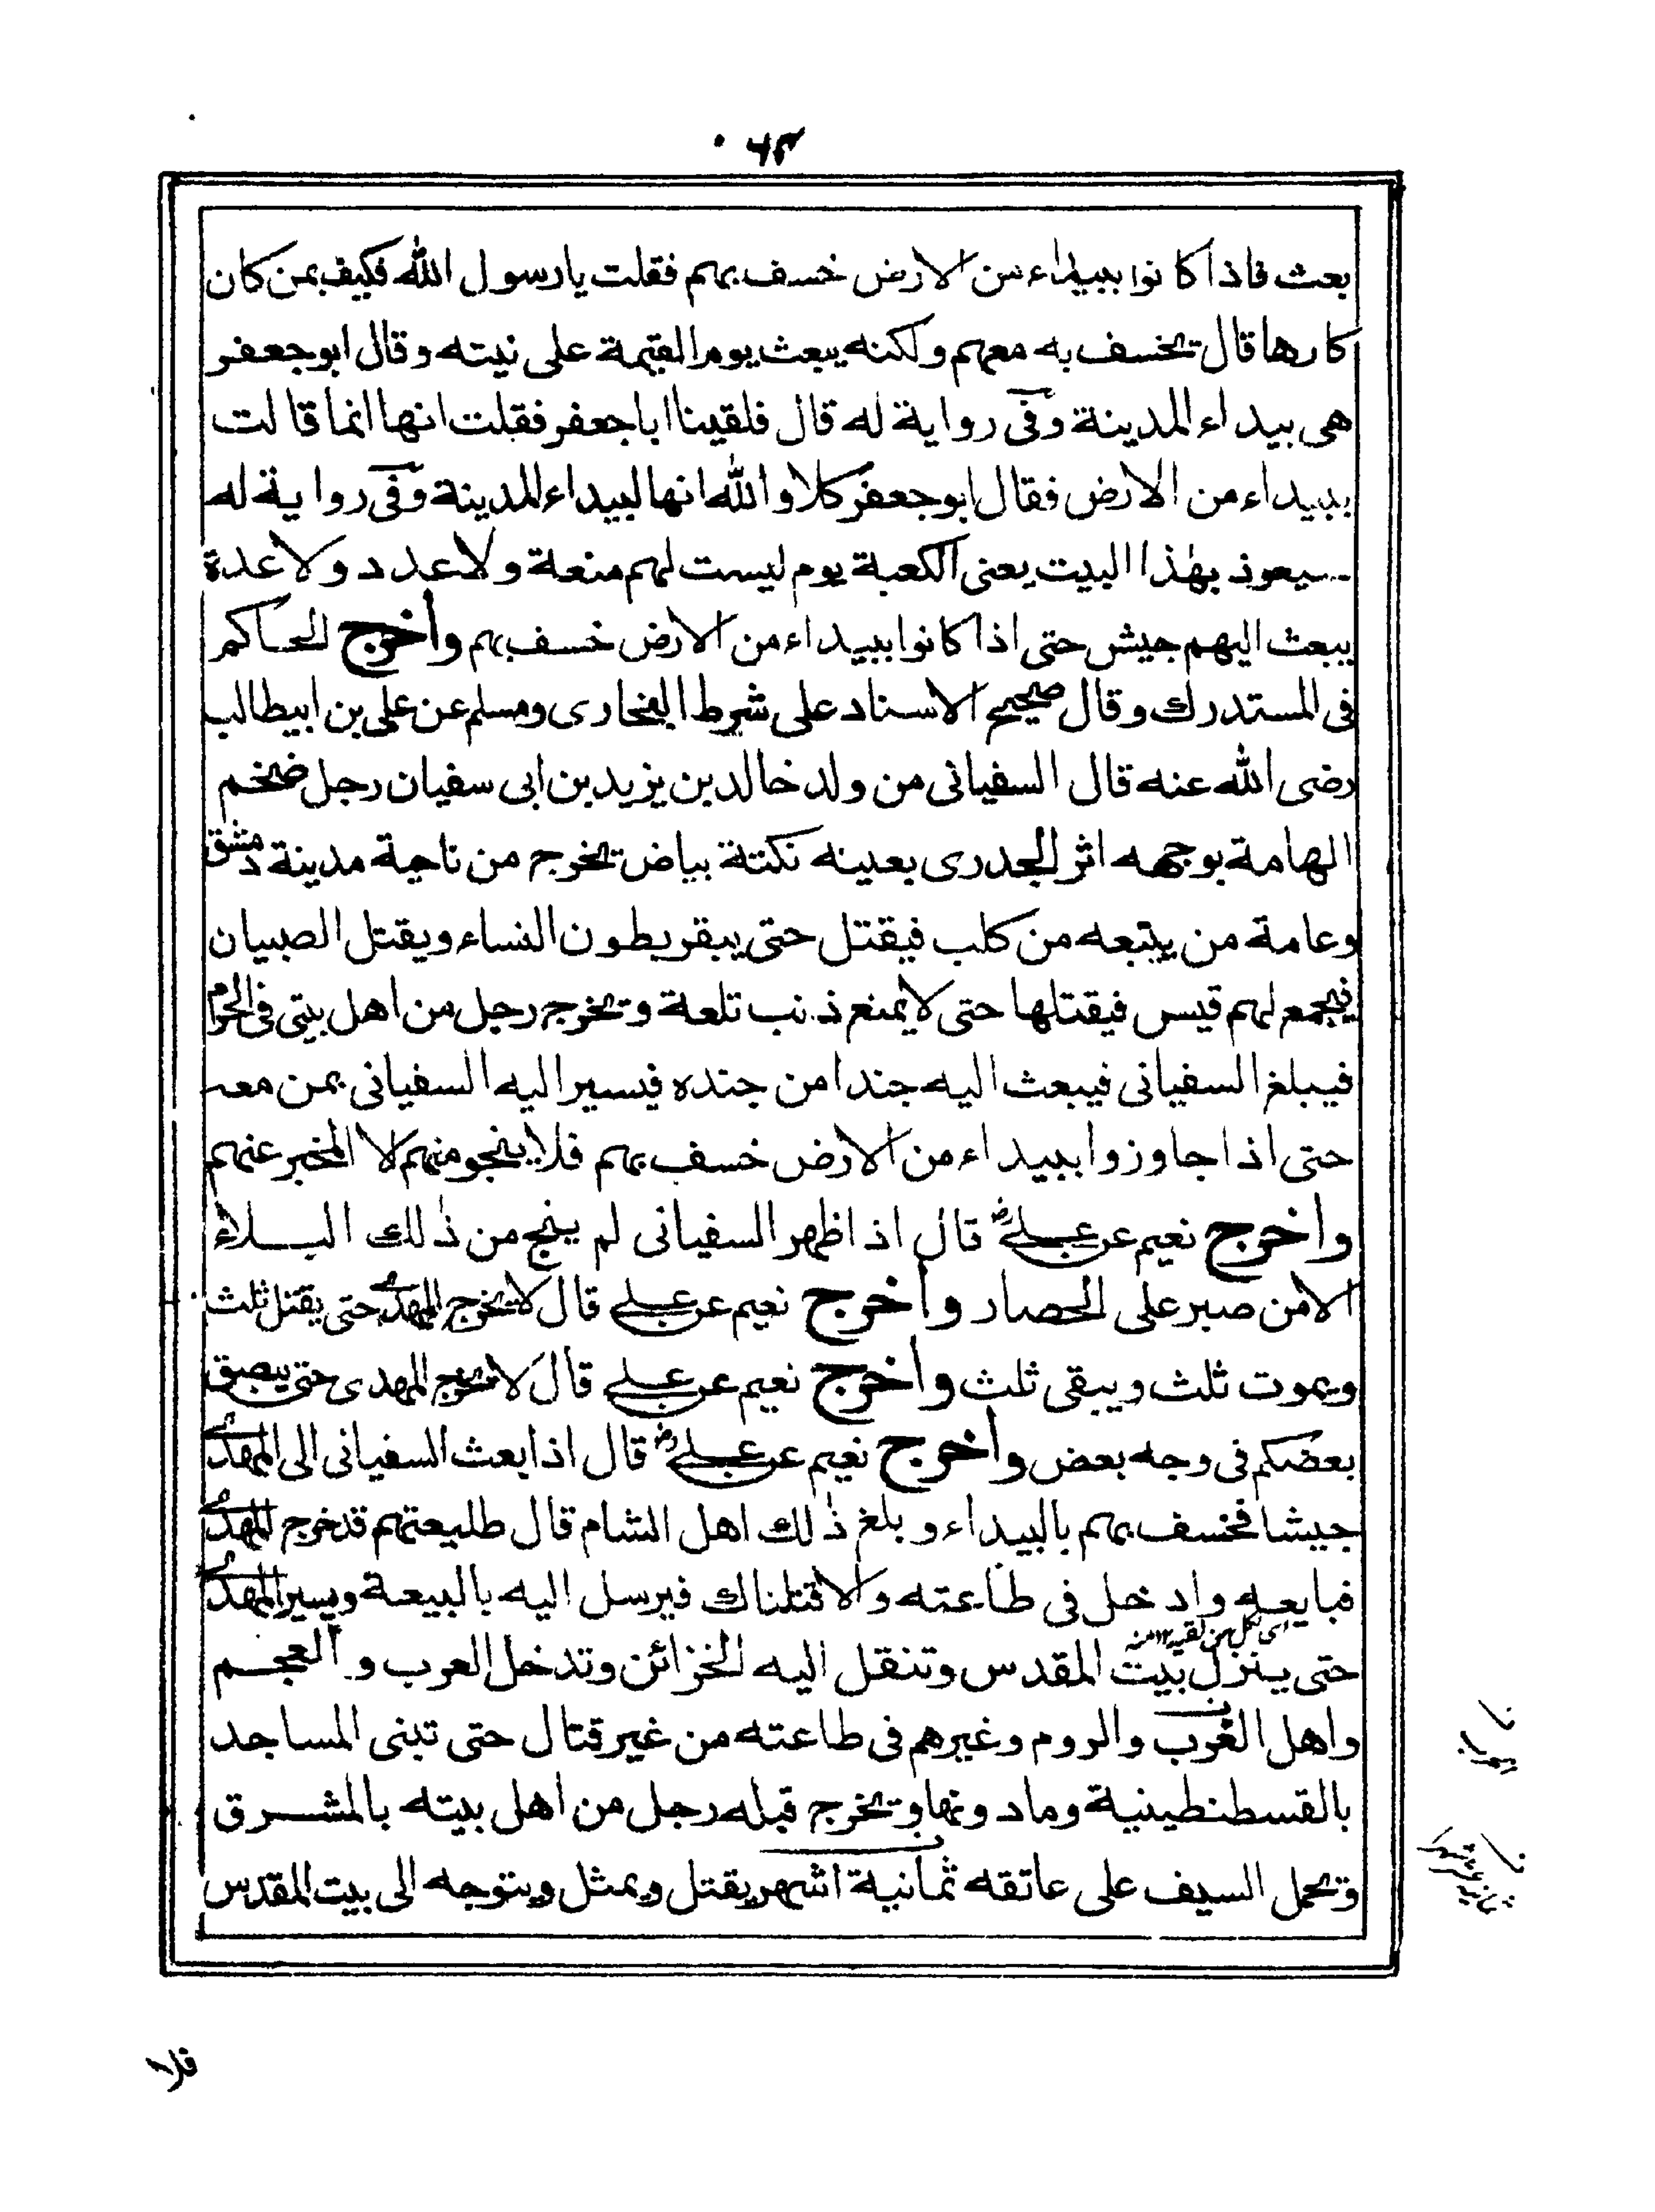 ٦٣
بعث فاذا كانوا ببيداء من الارض خسف بهم فقلت يا رسول الله فكيف بمن كان
كارها قال يخسف به معهم ولكنه يبعث يوم القيمة على نيته وقال ابو جعفر
هى بيداء المدينة وفى رواية له قال فلقينا ابا جعفر فقلت انها انما قالت
ببيداء من الارض فقال ابو جعفر كلا والله انها لبيداء المدينة وفى رواية له
سيعوذ بهذا البيت يعنى الكعبة يوم ليست لهم منعة ولا عدد ولا عدة
يبعث اليهم جيش حتى اذا كانوا ببيداء من الارض خسف بهم واخرج الحاكم
فى المستدرك وقال صحيح الاسناد على شرط البخارى ومسلم عن على بن ابيطالب
رضى الله عنه قال السفيانى من ولد خالد بن يزيد بن ابى سفيان رجل ضخم
الهامة بوجهه اثر الجدرى بعينه نكتة بياض يخرج من ناحية مدينة دمشق
وعامة من يتبعه من كلب فيقتل حتى يبقر بطون النساء ويقتل الصبيان
فيجمع لهم قيس فيقتلها حتى لا يمنع ذنب تلعة ويخرج رجل من اهل بيتى فى الحرم
فيبلغ السفيانى فيبعث اليه جندا من جنده فيسير اليه السفيانى بمن معه
حتى اذا جاوزوا ببيداء من الارض خسف بهم فلا ينجو منهم الا المخبر عنهم
واخرج نعيم عن على قال اذا ظهر السفيانى لم ينج من ذلك البلاء
الا من صبر على الحصار واخرج نعيم عن على قال لا يخرج المهدى حتى يقتل ثلث
ويموت ثلث ويبقى ثلث واخرج نعيم عن على قال لا يخرج المهدى حتى يبصق
بعضكم فى وجه بعض واخرج نعيم عن على قال اذا بعث السفيانى الى المهدى
جيشا فخسف بهم بالبيداء وبلغ ذلك اهل الشام قال طليعتهم قد خرج المهدى
فبايعه وادخل فى طاعته والا قتلناك فيرسل اليه بالبيعة ويسير المهدى
حتى ينزل بيت المقدس وتنقل اليه الخزائن وتدخل العرب والعجم
واهل الغرب والروم وغيرهم فى طاعته من غير قتال حتى تبنى المساجد
بالقسطنطينية وما دونها ويخرج قبله رجل من اهل بيته بالمشرق
ويحمل السيف على عاتقه ثمانية اشهر يقتل ويمثل ويتوجه الى بيت المقدس
فلا